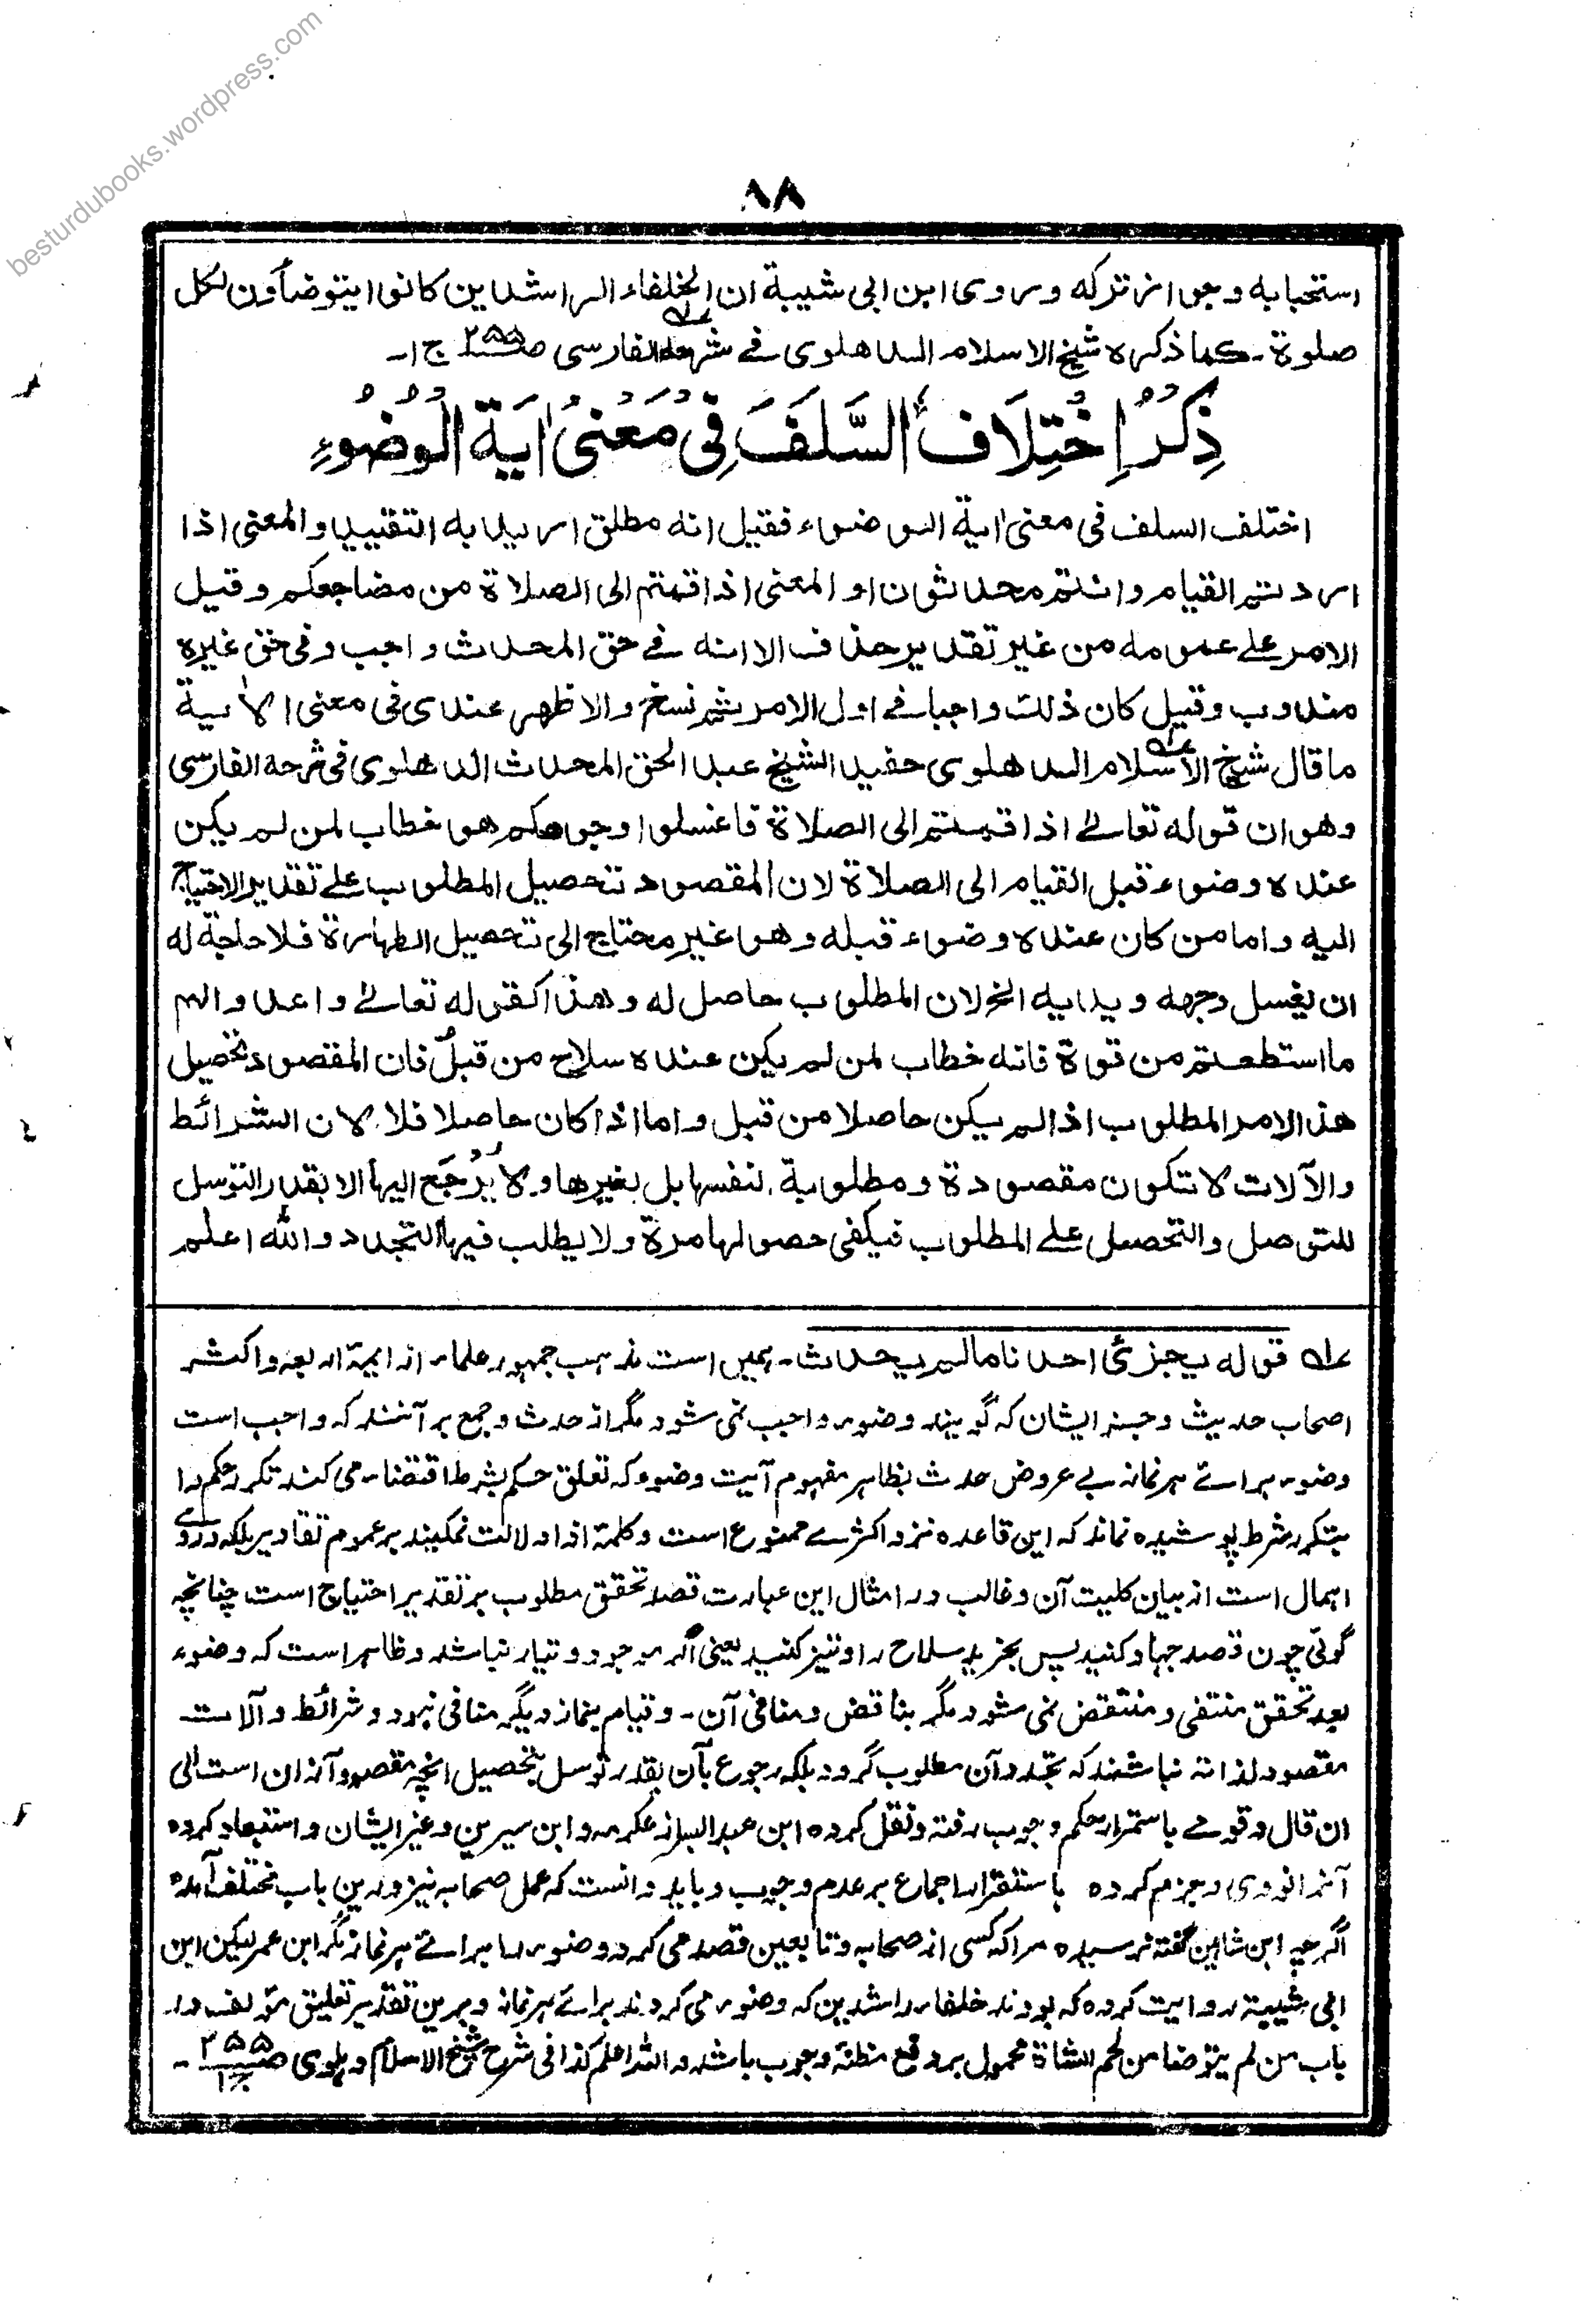 besturdubooks.wordpress.com
٩٨
استحبابه وجواز تركه وروى ابن ابى شيبة ان الخلفاء الراشدين كانوا يتوضأون لكل
صلوة ـ كما ذكره شيخ الاسلام الدهلوى فے شرحه الفارسى ص٢٥٥ ج ١ـ
ذِكْرُ اِخْتِلَافُ السَّلَفَ فِىْ مَعْنىٰ اٰيَةَ الْوُضُوْءِ
اختلف السلف فى معنىٰ اٰية الوضوء فقيل انه مطلق اريد به التقييد والمعنى اذا
اردتم القيام وانتم محدثون او المعنى اذا قمتم الى الصلاة من مضاجعكم وقيل
الامر علے عمومه من غير تقدير حذف الا انه فے حق المحدث واجب وفى حق غيره
مندوب وقيل كان ذلك واجبا فے اول الامر ثم نسخ والاظهر عندى فى معنى الاٰية
ما قال شيخ الاسلام الدهلوى حفيد الشيخ عبد الحق المحدث الدهلوى فى شرحه الفارسى
وهو ان قوله تعالے اذا قمتم الى الصلاة فاغسلوا وجوهكم هو خطاب لمن لم يكن
عنده وضوء قبل القيام الى الصلاة لان المقصود تحصيل المطلوب علے تقدير الاحتياج
اليه واما من كان عنده وضوء قبله وهو غير محتاج الى تحصيل الطهارة فلا حاجة له
ان يغسل وجهه ويديه الخ لان المطلوب حاصل له وهذا كقوله تعالے واعدوا لهم
ما استطعتم من قوة فانه خطاب لمن لم يكن عنده سلاح من قبل فان المقصود تحصيل
هذ الامر المطلوب اذا لم يكن حاصلا من قبل واما اذا كان حاصلا فلا. لان الشرائط
والآلات لا تكون مقصودة ومطلوبة لنفسها بل بغيرها ولا يُرْجَع اليها الا بقدر التوسل
للتوصل والتحصل علے المطلوب فيكفى حصولها مرة ولا يطلب فيها التجدد والله اعلم
ـله قوله يجزئ احدنا مالم يحدث ـ ہمیں است مذہب جمہور علماء از ایمۂ اربعہ واکثر
اصحاب حدیث وجز ایشان کہ گویند وضوء واجب نمی شود مگر از حدث وجمع بر آنند کہ واجب است
وضوء برائے ہر نماز بے عروض حدث بظاہر مفہوم آیت وضوء کہ تعلق حکم بشرط اقتضاء می کند تکرر حکم را
بتکرر شرط پوشیدہ نماند کہ این قاعدہ نزد اکثرے ممنوع است وکلمۂ اذا دلالت نمکیند بر عموم تقادیر بلکہ در وے
اہمال است از بیان کلیت آن وغالب در امثال این عبارت قصد تحقق مطلوب بر تقدیر احتیاج است چنانچہ
گوئی چون قصد جہاد کنید پس بخرید سلاح را وتیز کنید یعنی اگر موجود وتیار نباشد وظاہر است کہ وضوء
بعد تحقق منتفی ومنتقض نمی شود مگر بناقض ومنافی آن ـ وقیام بنماز دیگر منافی نبود وشرائط وآلات
مقصود لذاتہ نباشند کہ تجدد آن مطلوب گردد بلکہ رجوع بآن بقدر توسل بتحصیل انچہ مقصود آنران است الی
ان قال وقومے باستمرار حکم وجوب رفتہ ونقل کردہ ابن عبد البر از عکرمہ وابن سیرین وغیر ایشان واستبعاد کردہ
آنرا نووی وجزم کردہ باستقرار اجماع بر عدم وجوب وباید دانست کہ عمل صحابہ نیز درین باب مختلف آمدہ
اگرچہ ابن شاہین گفتہ نرسیدہ مرا کہ کسی از صحابہ وتابعین قصد می کرد وضوء را برائے ہر نماز مگر ابن عمر لیکن ابن
ابی شیبۃ روایت کردہ کہ بودند خلفاء راشدین کہ وضوء می کردند برائے ہر نماز وبرین تقدیر تعلیق مؤلف در
باب من لم یتوضا من لحم الشاة محمول بر دفع مظنۂ وجوب باشد واللہ اعلم کذا فی شرح شیخ الاسلام دہلوی ص٢٥٥ ج١ ـ